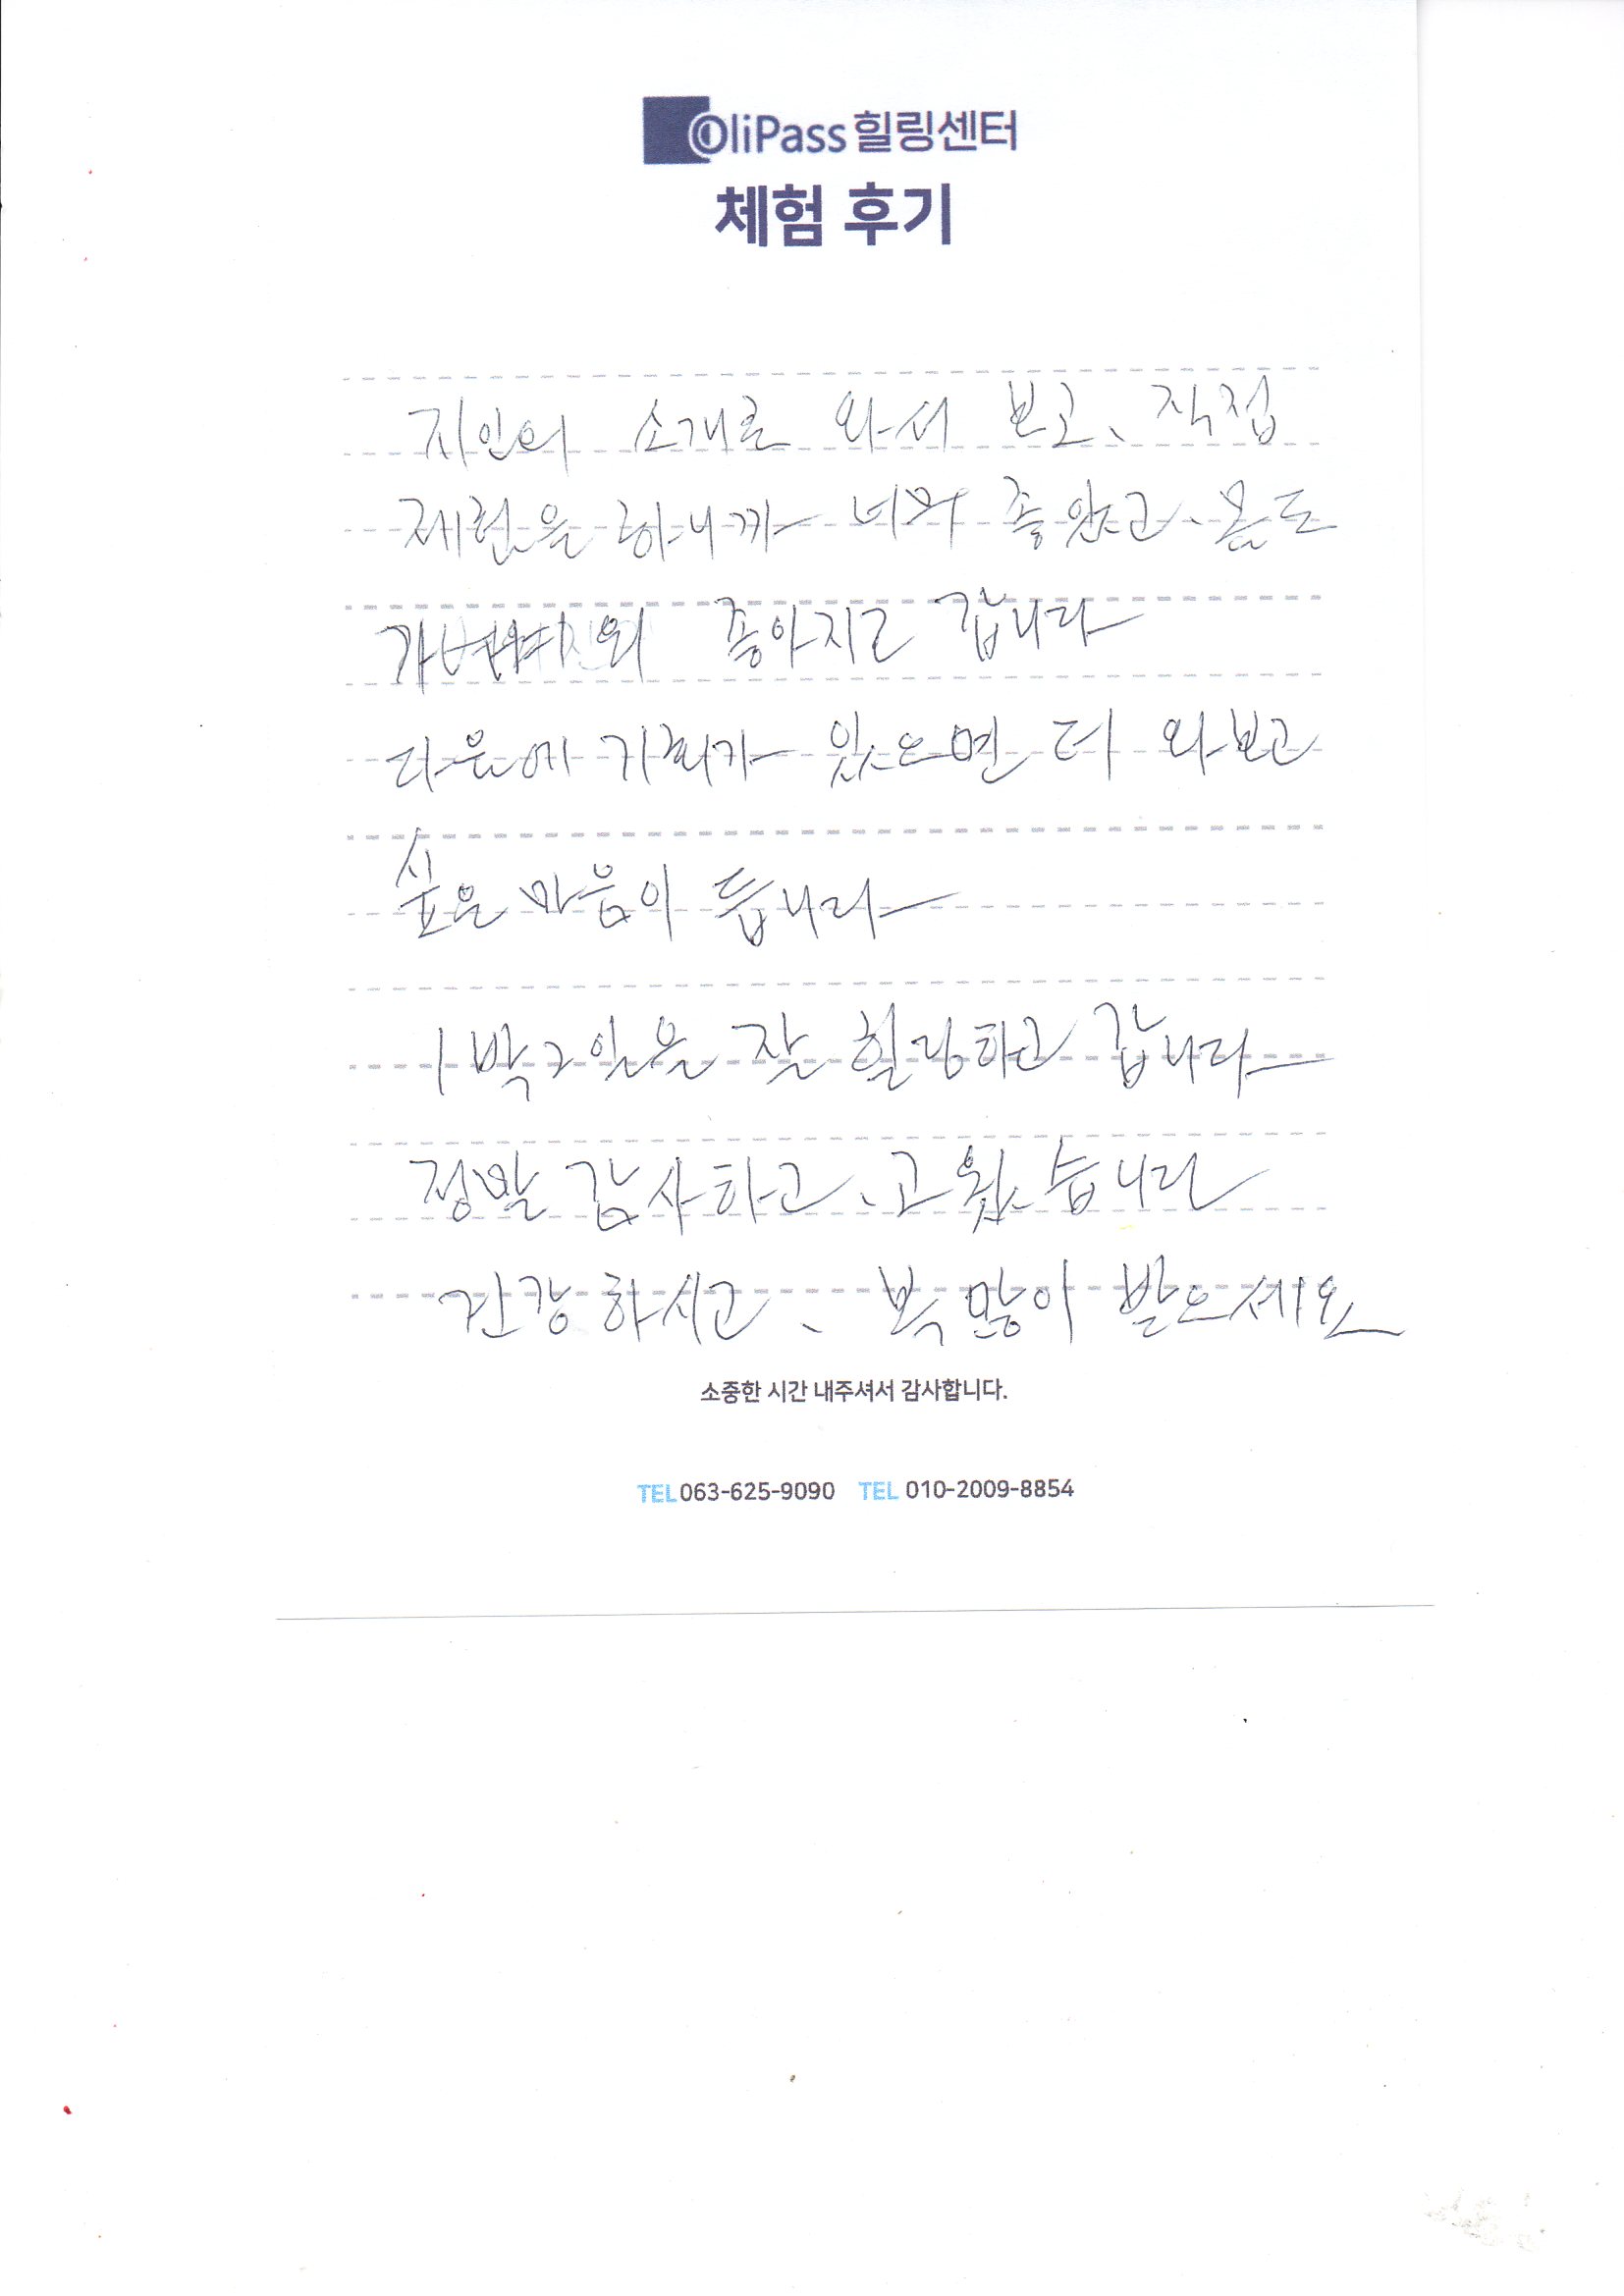 OliPass 힐링센터
체험 후기
지인의 소개로 와서 보고、직접
체험을 하니까 너무 좋았고、몸도
좋아지고 갑니다
다음에 기회가 있으면 더 와보고
싶은 마음이 듭니다
1박2일을 잘 힐링하고 갑니다
정말 감사하고、고왔습니다
건강하시고、복 많이 받으세요
소중한 시간 내주셔서 감사합니다.
TEL 063-625-9090 TEL 010-2009-8854